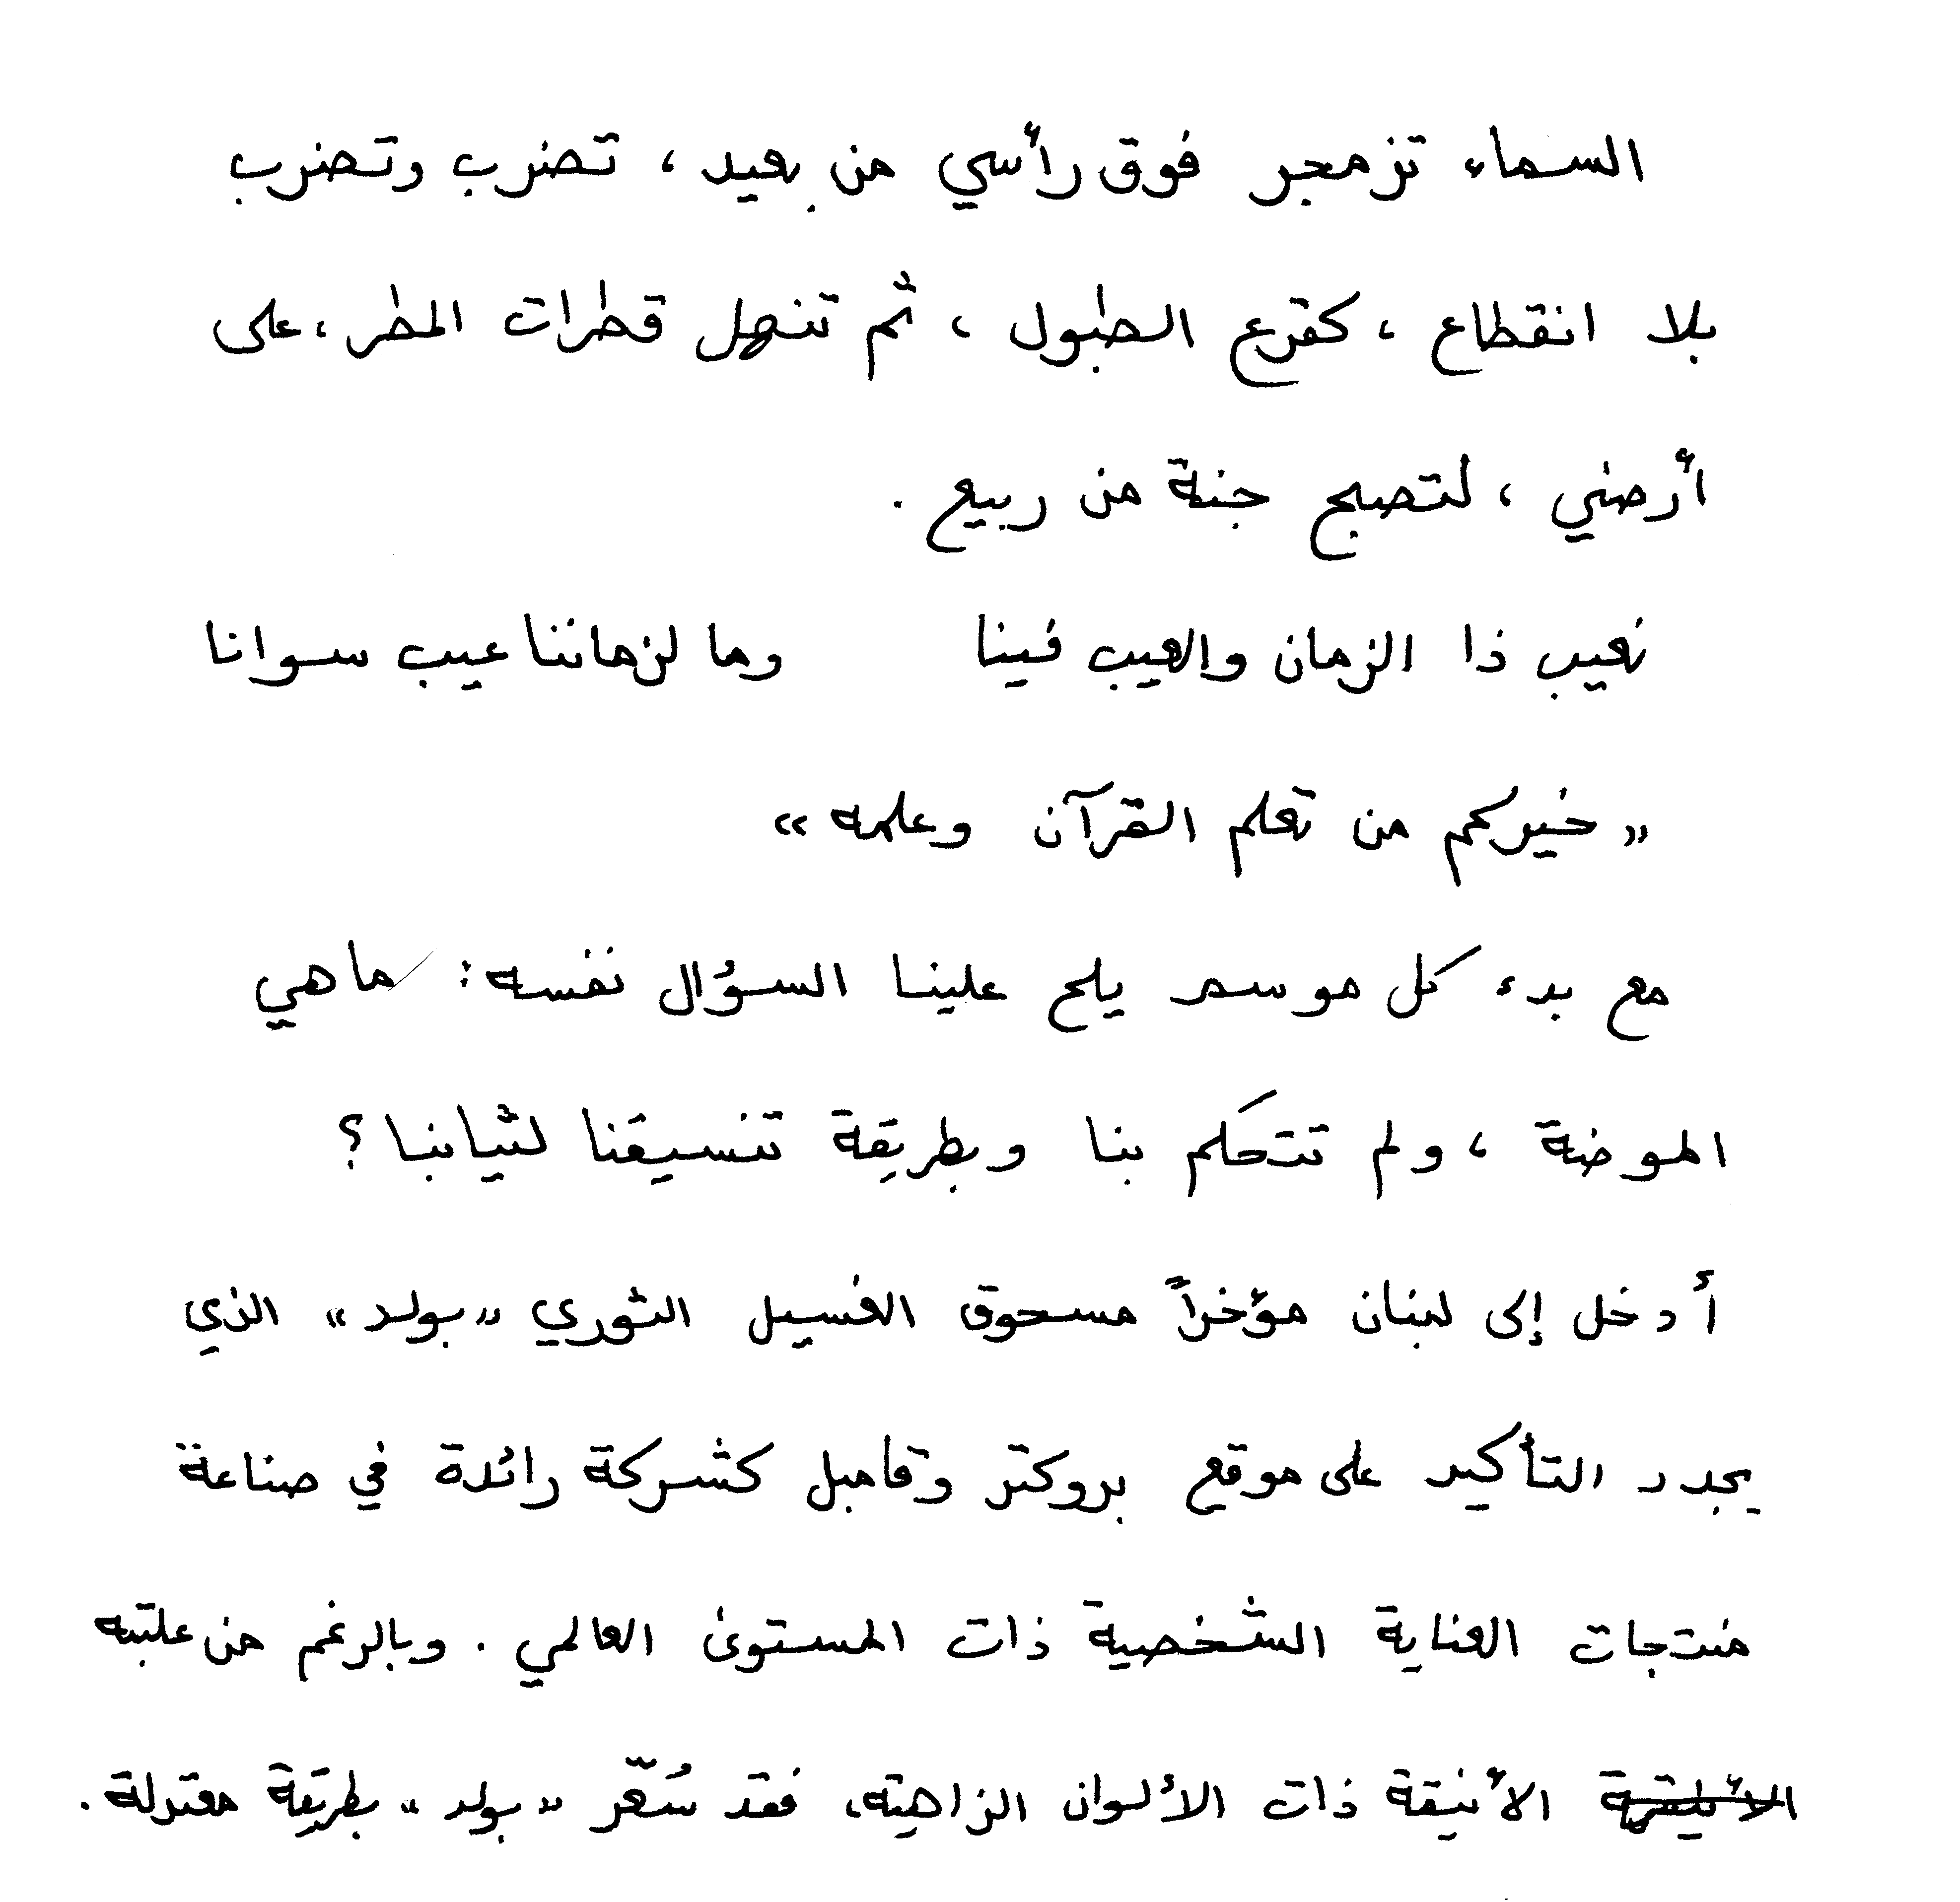 السماء تزمجر فوق رأسي من بعيد، تضرب وتضرب
بلا انقطاع، كقرع الطبول، ثم تنهل قطرات المطر، على
أرضي، لتصبح جنة من ربيع.
نعيب ذا الزمان والعيب فينا وما لزماننا عيب سوانا
«خيركم من تعلم القرآن وعلمه»
مع بدء كل موسم يلح علينا السؤال نفسه: ما هي
الموضة، ولم تتحكم بنا وبطريقة تنسيقنا لثيابنا؟
أدخل إلى لبنان مؤخراً مسحوق الغسيل الثوري «بولد» الذي
يجدد التأكيد على موقع بروكتر وقامبل كشركة رائدة في صناعة
منتجات العناية الشخصية ذات المستوى العالمي. وبالرغم من علبته
الأنيقة ذات الألوان الزاهية، فقد سُعّر «بولد» بطريقة معتدلة.